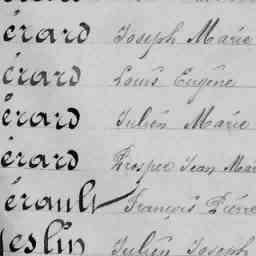 érard Joseph Marie
érard Louis Eugène
érard Julien Marie
érard Prosper Jean Mari
érault François Pierre
eslin Julien Joseph